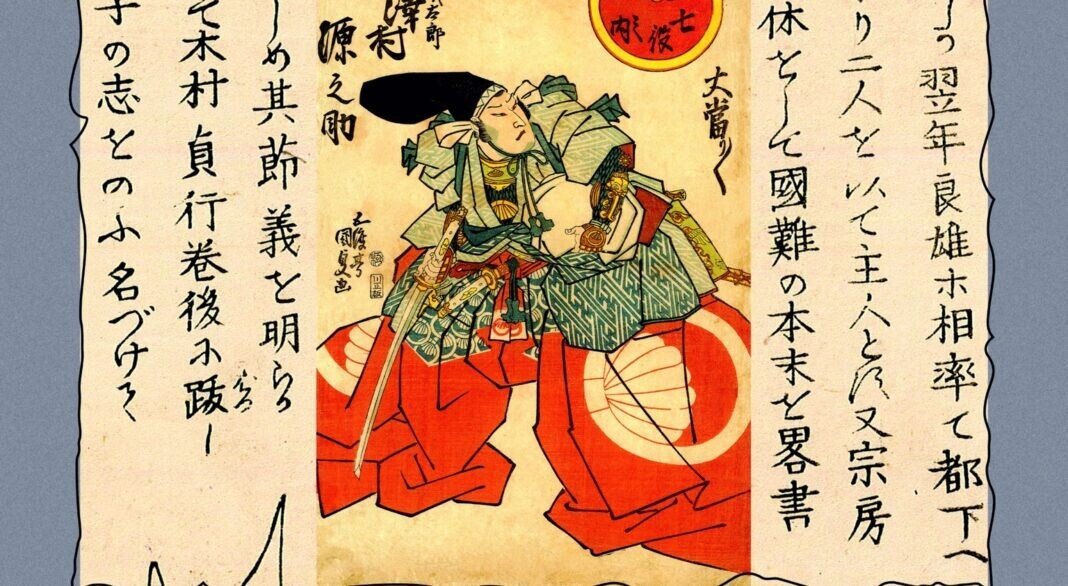 翌年良雄ホ相率て都下へ
り二人を以て主人とす又宗房
休をして國難の本末を畧書
七役
内
大當り〱
澤村
源之助
五渡亭
國貞画
しめ其節義を明らか
て木村貞行巻後に跋し
子の志をのふ名づけて